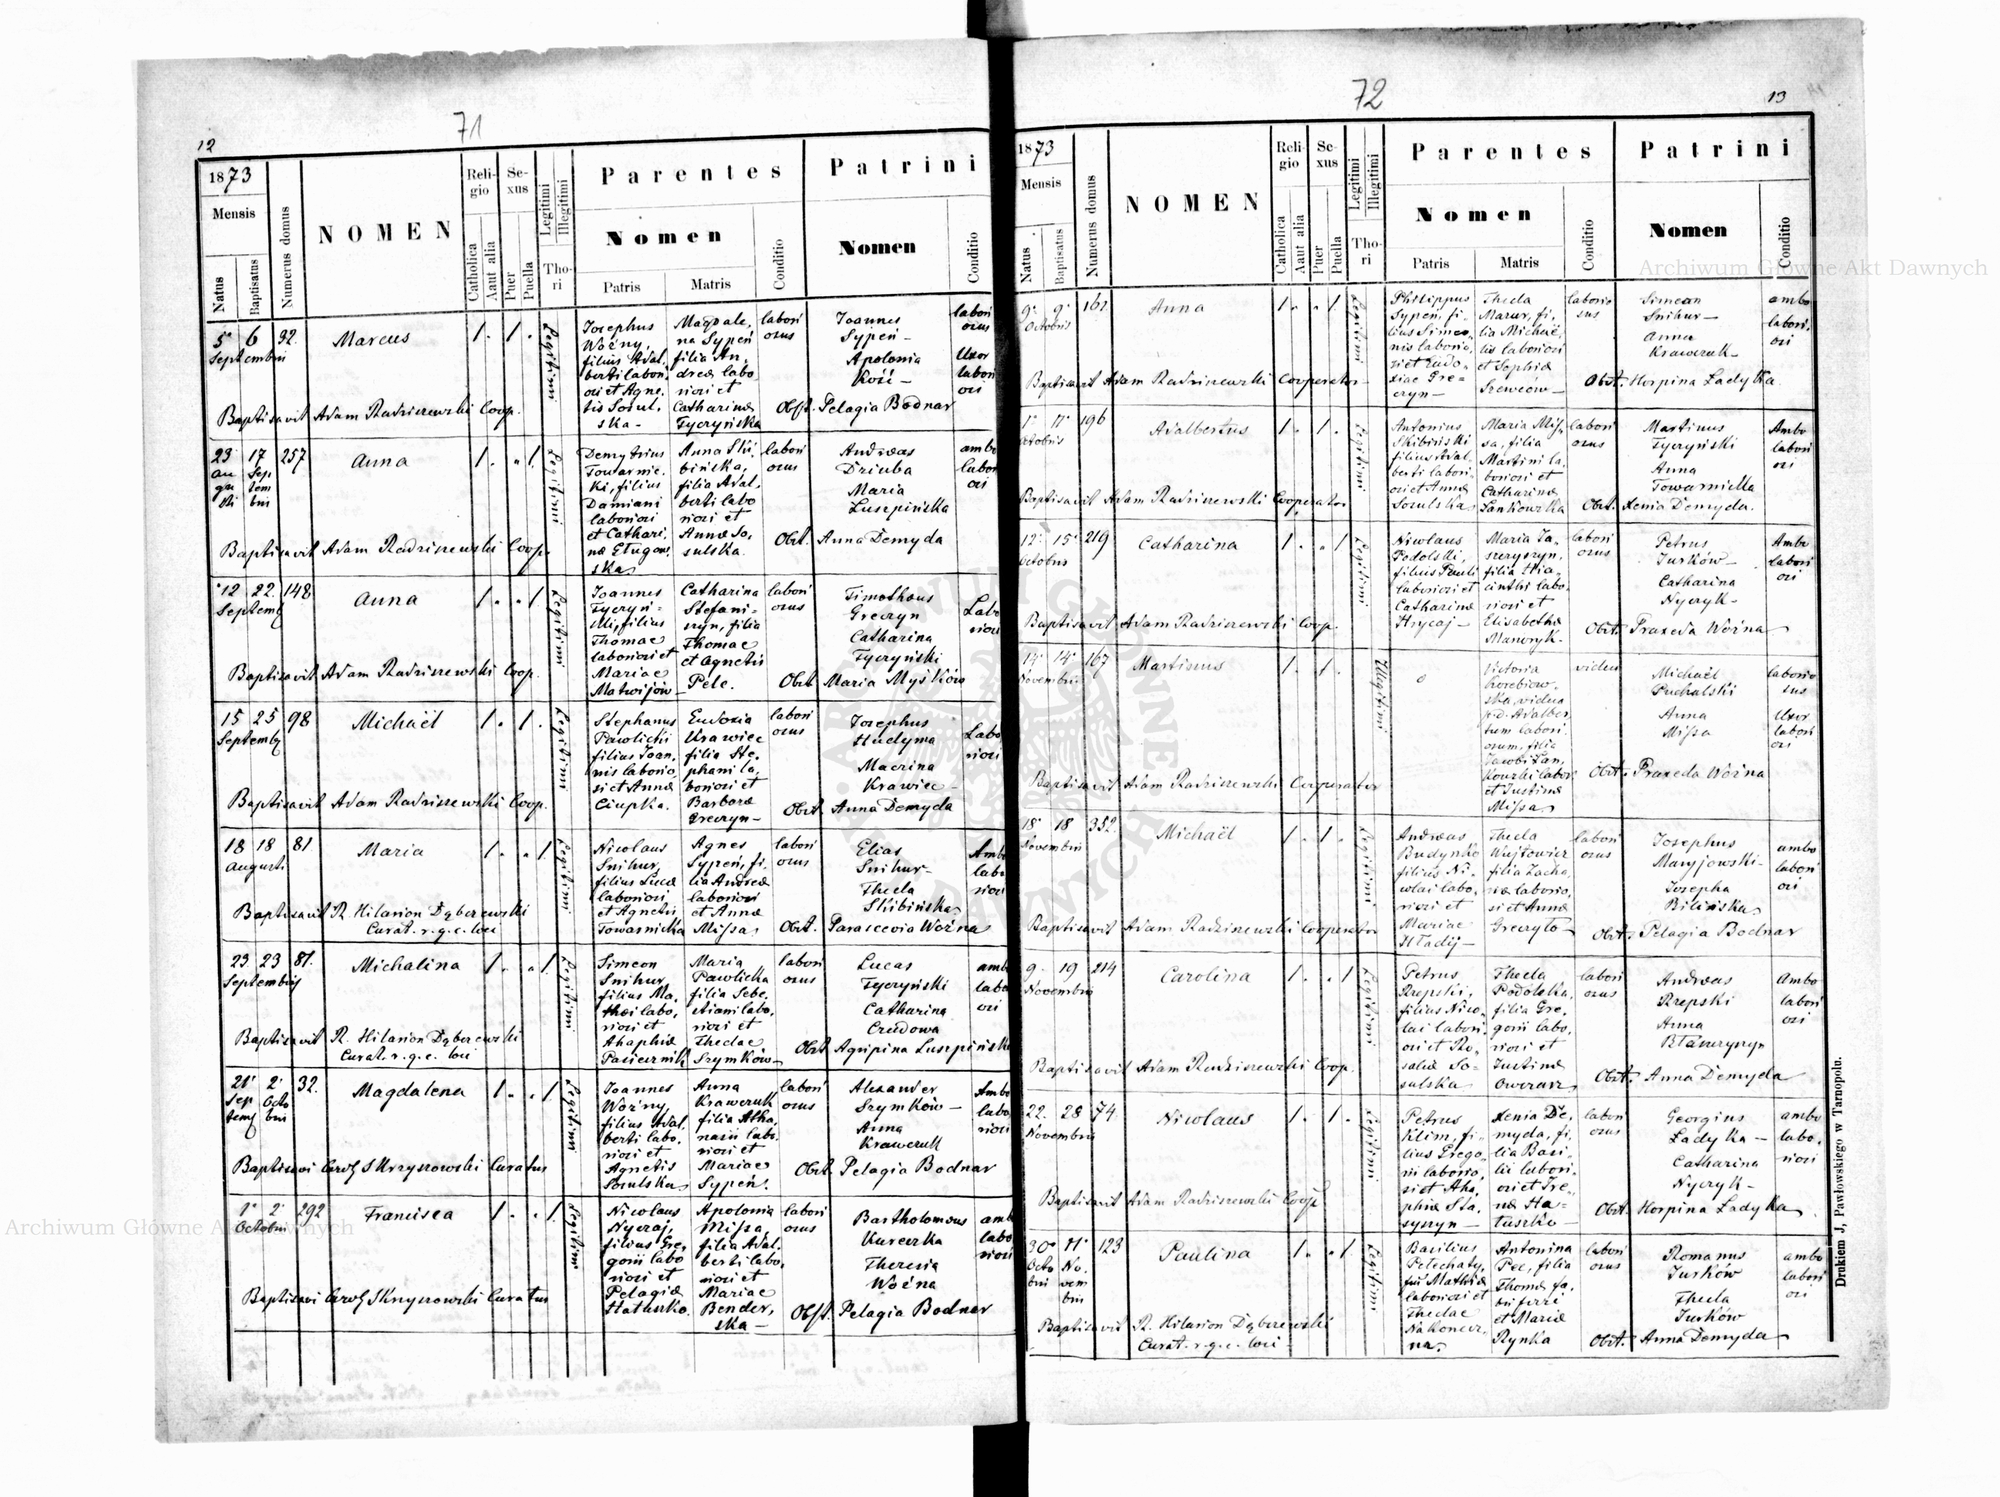 71
12
1873
Mensis
Natus
Baptisatus
Numerus domus
NOMEN
Religio
Catholica
Aaut alia
Sexus
Puer
Puella
Legitimi
Illegitimi
Thori
Parentes
Nomen
Patris
Matris
Conditio
Patrini
Nomen
Conditio
5 6 32.
Septembris
Marcus
1. 1.
Legitimi
Josephus
Woźny,
filius Adal,
berti labori
osi et Agne,
tis Sosul,
ska -
Magdale,
na Sypeń
filia An,
dreæ labo
riosi et
Catharinæ
Tyczyńska
labori
osus
Joannes
Sypeń -
Apolonia
Kość -
labori
osus
Uxor
labori
osi
Baptisavit Adam Radziszewski Coop.
Obst. Pelagia Bodnar
23 17 257
Au
gu
sti
Sep
tem
bris
Anna
1. " 1.
Legitimi
Demytrius
Towarnic
ki, filius
Damiani
laboriosi
et Cathari,
næ Długow,
ska
Anna Ski
bińska,
filia Adal,
berti labo
riosi et
Annæ So,
sulska.
labori
osus
Andreas
Dziuba
Maria
Luszpińska
ambo
labori
osi
Baptisavit Adam Radziszewski Coop.
Obst. Anna Demyda
12 22 148
Septemb
Anna
1. " 1
Legitimi
Joannes
Tyczyń-
ski, filius
Thomae
laboriosi et
Mariae
Matwijów
Catharina
Stefani-
szyn, filia
Thomae
et Agnetis
Pele.
labori
osus
Timotheus
Greczyn
Catharina
Tyczyński
Labo
riosi
Baptisavit Adam Radziszewski Coop.
Obst. Maria Myśków
15 25 98
Septemb
Michaël
1. 1.
Legitimi
Stephanus
Pawlicki
filius Joan,
nis laborio,
si et Annæ
Ciupka.
Eudoxia
Krawiec
filia Ste,
phani la,
boriosi et
Barbaræ
Greczyn -
labori
osus
Josephus
Hudyma
Macrina
Krawiec -
Labo
riosi
Baptisavit Adam Radziszewski Coop.
Obst. Anna Demyda
18 18 81
Augusti
Maria
1. " 1.
Legitimi
Nicolaus
Snihur,
filius Lucæ
laboriosi,
et Agnetis
Towarnicka
Agnes
Sypeń, fi,
lia Andreæ
laboriosi
et Annæ
Missa,
labori
osus
Elias
Snihur -
Thecla
Skibińska
Ambo
labo
riosi
Baptisavit R. Hilarion Dąbczewski
Curat. r. g. c. loci
Obst. Parascevia Woźna
23 23 81.
Septembris
Michalina
1. " 1.
Legitimi
Simeon
Snihur,
filius Ma,
thei labo,
riosi et
Ahaphiæ
Pasiecznik
Maria
Pawlicka
filia Seba,
stiani labo,
riosi et
Theclae
Szymków -
labori
osus
Lucas
Tyczyński
Catharina
Czudowa
ambo
labo
osi
Baptisavit R. Hilarion Dąbczewski
Curat. r. g. c. loci
Obst. Agripina Luszpińska
21 2 32.
Sep
temb
Octo
bris
Magdalena
1. " 1.
Legitimi
Joannes
Woźny
filius Adal,
berti labo,
riosi et
Agnetis
Sosulska,
Anna
Krawczuk
filia Atha,
nasii labo,
riosi et
Mariae
Sypeń.
labori
osus
Alexander
Szymków -
Anna
Krawczuk
Ambo
labo,
riosi
Baptisavi Carol Skrzyszowski Curatus
Obst. Pelagia Bodnar
1 2 292
Octobris
Francisca
1. . 1.
Legitimi
Nicolaus
Nyczaj,
filius Gre,
gorii labo
riosi et
Pelagiæ
Hathusko.
Apolonia
Missa,
filia Adal,
berti labo,
riosi et
Mariae
Bender,
ska -
labori
osus
Bartholomeus
Kureczka
Theresia
Woźna
ambo
labo
riosi
Baptisavi Carol Skrzyszowski Curatus
Obst. Pelagia Bodnar
72
13
1873
Mensis
Natus
Baptisatus
Numerus domus
NOMEN
Religio
Catholica
Aaut alia
Sexus
Puer
Puella
Legitimi
Illegitimi
Thori
Parentes
Nomen
Patris
Matris
Conditio
Patrini
Nomen
Conditio
9 9 161
Octobris
Anna
1. " 1.
Legitimi
Philippus
Sypeń, fi,
lius Simeo,
nis laborio,
si et Eudo,
xiae Gre-
czyn -
Thecla
Mazur, fi,
lia Michaë,
lis laboriosi
et Sophiæ
Szewców -
laborio
sus
Simeon
Snihur -
Anna
Krawczuk -
ambo
labori,
osi
Baptisavit Adam Radziszewski Cooperator
Obst. Horpina Ladyka
1 11 196
Octobris
Adalbertus
1. 1.
Legitimi
Antonius
Skibiński
filius Adal,
berti labori,
osi et Annæ
Sosulska,
Maria Mis-
sa, filia
Martini la,
boriosi et
Catharinæ
Sankowska
labori
osus
Martinus
Tyczyński
Anna
Towarnicka
Ambo
labori
osi
Baptisavit Adam Radziszewski Cooperator
Obst. Xenia Demyda.
12 15 219
Octobris
Catharina
1. " 1
Legitimi
Nicolaus
Podolski,
filius Pauli
laboriosi et
Catharinæ
Hrycaj -
Maria Ja-
szczyszyn,
filia Hia-
cinthi labo,
riosi et
Elisabethæ
Mawryk -
labori
osus
Petrus
Jurków -
Catharina
Nyczyk -
Ambo
labori
osi
Baptisavit Adam Radziszewski Coop.
Obst. Praxeda Woźna
14 14 167
Novembris
Martinus
1. 1.
Illegitimi
Victoria
Korebiow,
ska, vidua
p. d. Adalber,
tum labori,
osum, filia
Jacobi Jan,
kowski labor
et Justinæ
Missa,
vidua
Michaël
Puchalski
Anna
Missa
laborio
sus
Uxor
labori
osi
Baptisavit Adam Radziszewski Cooperator
Obst. Praxeda Woźna
18 18 352.
Novembris
Michaël
1. 1.
Legitimi
Andreas
Budynko
filius Ni,
colai labo,
riosi et
Mariae
Hladij -
Thecla
Wujtowicz
filia Zacha,
riæ laborio,
si et Annæ
Greczyło -
labori
osus
Josephus
Maryjowski -
Josepha
Bilińska,
ambo
labori
osi
Baptisavit Adam Radziszewski Cooperator
Obst. Pelagia Bodnar
9 19 214
Novembris
Carolina
1. " 1
Legitimi
Petrus
Rzepski,
filius Nico,
lai labori,
osi et Ro,
saliæ So-
sulska
Thecla
Podolska,
filia Gre,
gorii labo,
riosi et
Justinæ
Owczarz,
labori
osus
Andreas
Rzepski
Anna
Ambo
labori
osi
Baptisavit Adam Radziszewski Coop.
Obst. Anna Demyda
22. 28 74.
Novembris
Nicolaus
1. 1.
Legitimi
Petrus
Klim, fi,
lius Grego,
rii laborio,
si et Aha,
phiæ Sta,
syszyn -
Xenia De,
myda, fi,
lia Basi,
lii labori,
osi et Ire,
næ Ha-
tuszko -
labori
osus
Georgius
Ladyka -
Catharina
Nyczyk -
ambo
labo,
riosi
Baptisavit Adam Radziszewski Coop
Obst. Horpina Ladyka
30 11 123
Octo
bris
No,
vem
bris
Paulina
1. " 1.
Legitimi
Basilius
Pelechaty,
fil Mathiæ
laboriosi et
Theclae
Nakonecz,
na,
Antonina
Pec, filia
Thomæ fa,
bri ferri
et Mariæ
Rynka
labori
osus
Romanus
Jurków
Thecla
Jurków
ambo
labori
osi
Baptisavit R. Hilarion Dąbczewski
Curat. r. g. c. loci -
Obst. Anna Demyda
Drukiem J, Pawłowskiego w Tarnopolu.
Archiwum Główne Akt Dawnych
Archiwum Główne Akt Dawnych
ARCHIWUM GŁÓWNE AKT DAWNYCH